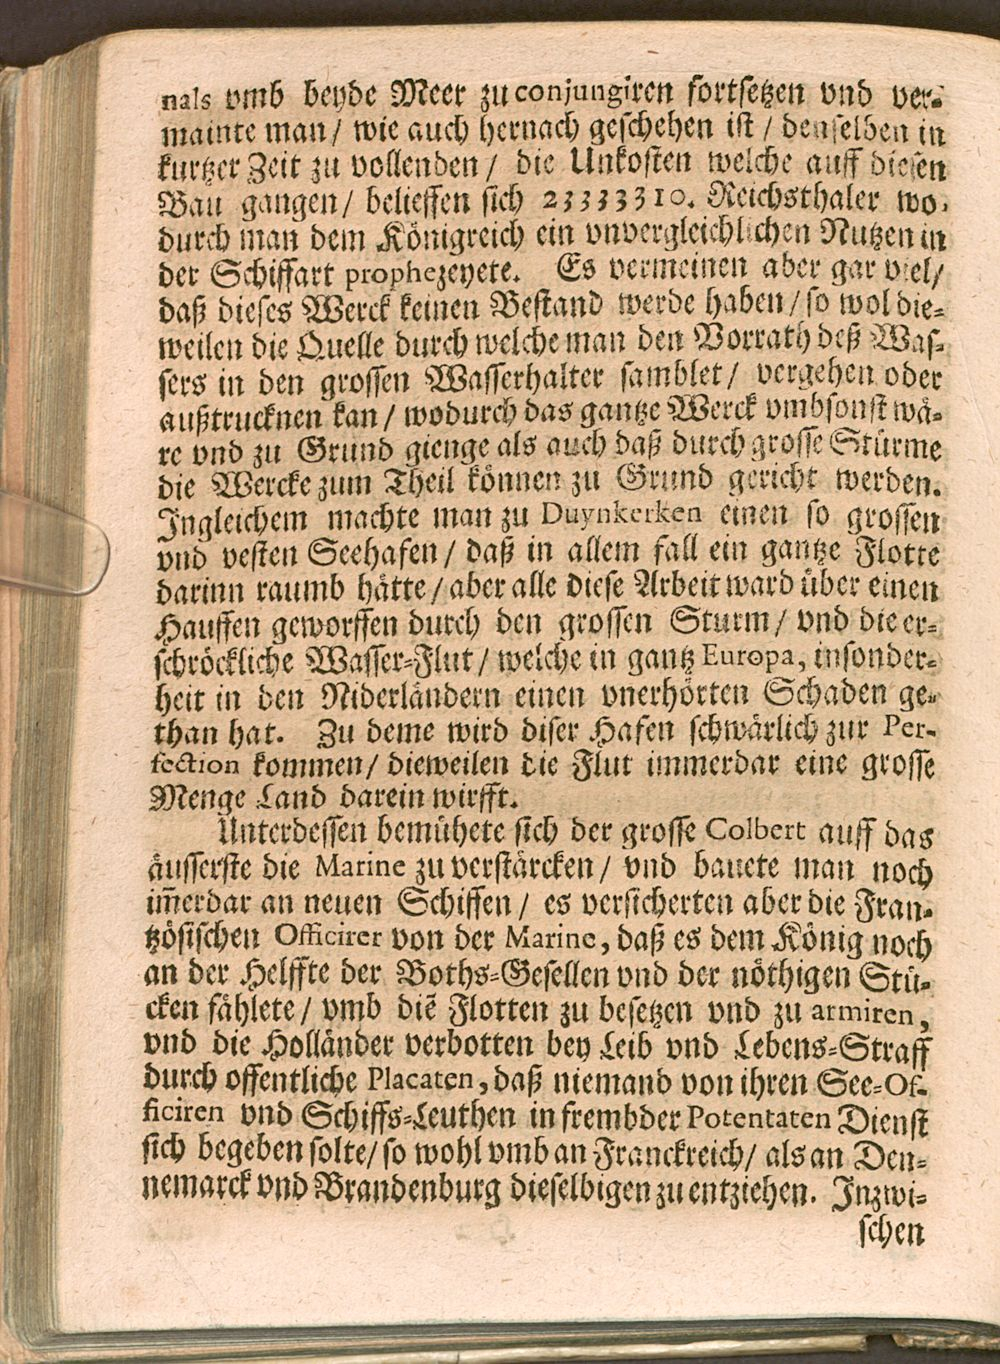 nals vmb beyde Meer zu conjungiren fortsetzen vnd ver-
mainte man/ wie auch hernach geschehen ist / denselben in
kurtzer Zeit zu vollenden/ die Unkosten welche auff diesen
Bau gangen/ belieffen sich 23333310. Reichsthaler wo-
durch man dem Königreich ein vnvergleichlichen Nutzen in
der Schiffart prophezeyete. Es vermeinen aber gar viel/
daß dieses Werck keinen Bestand werde haben/ so wol die-
weilen die Quelle durch welche man den Vorrath deß Was-
sers in den grossen Wasserhalter samblet/ vergehen oder
außtrucknen kan/ wodurch das gantze Werck vmbsonst wä-
re vnd zu Grund gienge als auch daß durch grosse Stürme
die Wercke zum Theil können zu Grund gericht werden.
Ingleichem machte man zu Duynkerken einen so grossen
vnd vesten Seehafen/ daß in allem fall ein gantze Flotte
darinn raumb hätte/ aber alle diese Arbeit ward über einen
Hauffen geworffen durch den grossen Sturm/ vnd die er-
schröckliche Wasser-Flut/ welche in gantz Europa, insonder-
heit in den Niderländern einen vnerhörten Schaden ge-
than hat. Zu deme wird diser Hafen schwärlich zur Per-
fection kommen/ dieweilen die Flut immerdar eine grosse
Menge Land darein wirfft.
Unterdessen bemühete sich der grosse Colbert auff das
äusserste die Marine zu verstärcken/ vnd bauete man noch
im̃erdar an neuen Schiffen/ es versicherten aber die Fran-
tzösischen Officirer von der Marine, daß es dem König noch
an der Helffte der Boths-Gesellen vnd der nöthigen Stü-
cken fählete/ vmb diẽ Flotten zu besetzen vnd zu armiren,
vnd die Holländer verbotten bey Leib vnd Lebens-Straff
durch offentliche Placaten, daß niemand von ihren See-Of-
ficiren vnd Schiffs-Leuthen in frembder Potentaten Dienst
sich begeben solte/ so wohl vmb an Franckreich/ als an Den-
nemarck vnd Brandenburg dieselbigen zu entziehen. Inzwi-
schen